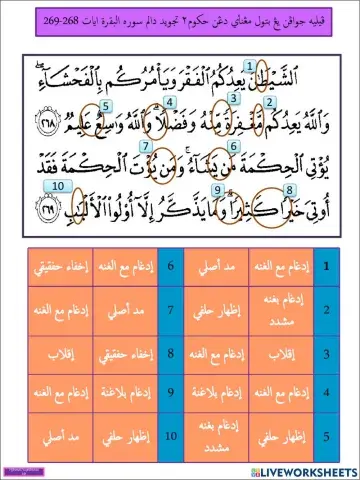 ڤيليه جواڤن يڠ بتول مڠنأي دڠن حكوم٢ تجويد دالم سوره البقرة ايات 268-269
1
الشَّيْطَٰنُ يَعِدُكُمُ الْفَقْرَ وَيَأْمُرُكُم بِالْفَحْشَاءِ
5 4 3 2
وَاللَّهُ يَعِدُكُم مَّغْفِرَةً مِّنْهُ وَفَضْلًا وَاللَّهُ وَاسِعٌ عَلِيمٌ ٢٦٨
7 6
يُؤْتِي الْحِكْمَةَ مَن يَشَاءُ وَمَن يُؤْتَ الْحِكْمَةَ فَقَدْ
10 9 8
أُوتِيَ خَيْرًا كَثِيرًا وَمَا يَذَّكَّرُ إِلَّا أُولُوا الْأَلْبَابِ ٢٦٩
1 إدغام مع الغنه مد أصلي 6 إدغام مع الغنه إخفاء حقيقي
2 إدغام بغنه مشدد إظهار حلقي 7 مد أصلي إدغام مع الغنه
3 إقلاب إدغام مع الغنه 8 إخفاء حقيقي إقلاب
4 إدغام مع الغنه إدغام بلاغنة 9 إدغام بلاغنة إدغام مع الغنه
5 إظهار حلقي إدغام بغنه مشدد 10 إظهار حلقي مد أصلي
LIVEWORKSHEETS